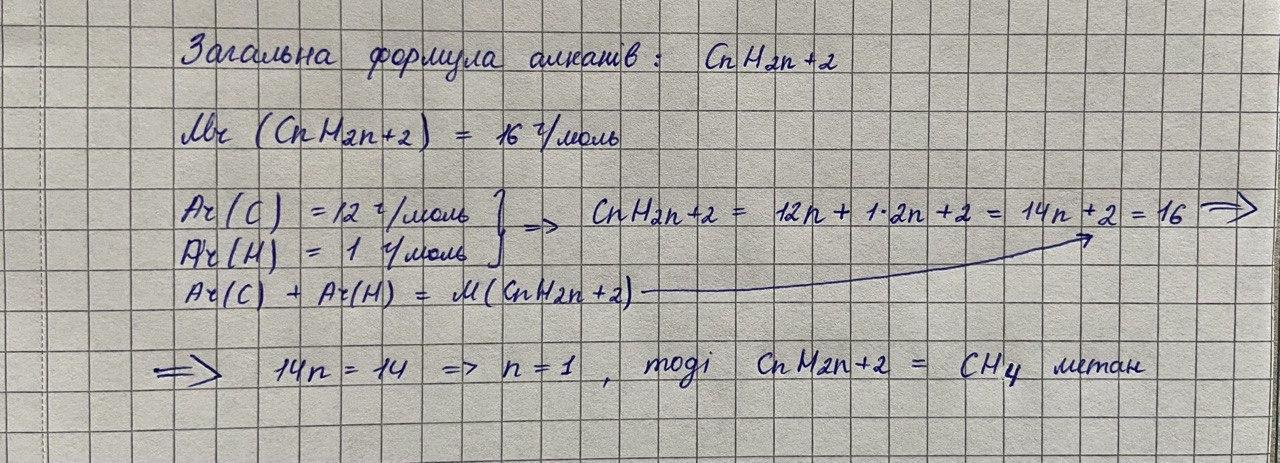 Загальна формула алканів: CnH2n+2
Mr (CnH2n+2) = 16 г/моль
Ar(C) = 12 г/моль } => CnH2n+2 = 12n + 1·2n + 2 = 14n + 2 = 16 =>
Ar(H) = 1 г/моль
Ar(C) + Ar(H) = M(CnH2n+2)
=> 14n = 14 => n = 1, тоді CnH2n+2 = CH4 метан